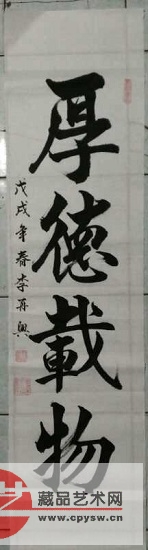 厚德載物
戊戌年春李再興
藏品艺术网
www.cpysw.cn